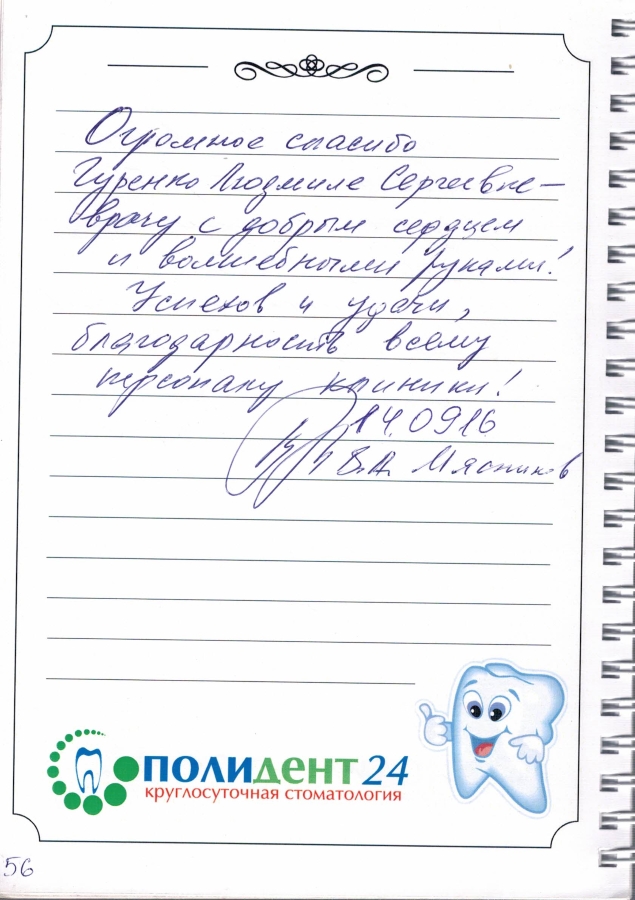 Огромное спасибо
Гуренко Людмиле Сергеевне -
врачу с добрым сердцем
и волшебными руками!
Успехов и удачи,
благодарность всему
персоналу клиники!
14.09.16
В.А. Мясников
ПОЛИДЕНТ 24
круглосуточная стоматология
56